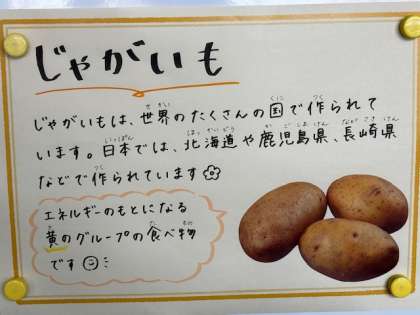 じゃがいも
じゃがいもは、世界のたくさんの国で作られて
います。日本では、北海道や鹿児島県、長崎県
などで作られています
エネルギーのもとになる
黄のグループの食べ物
です